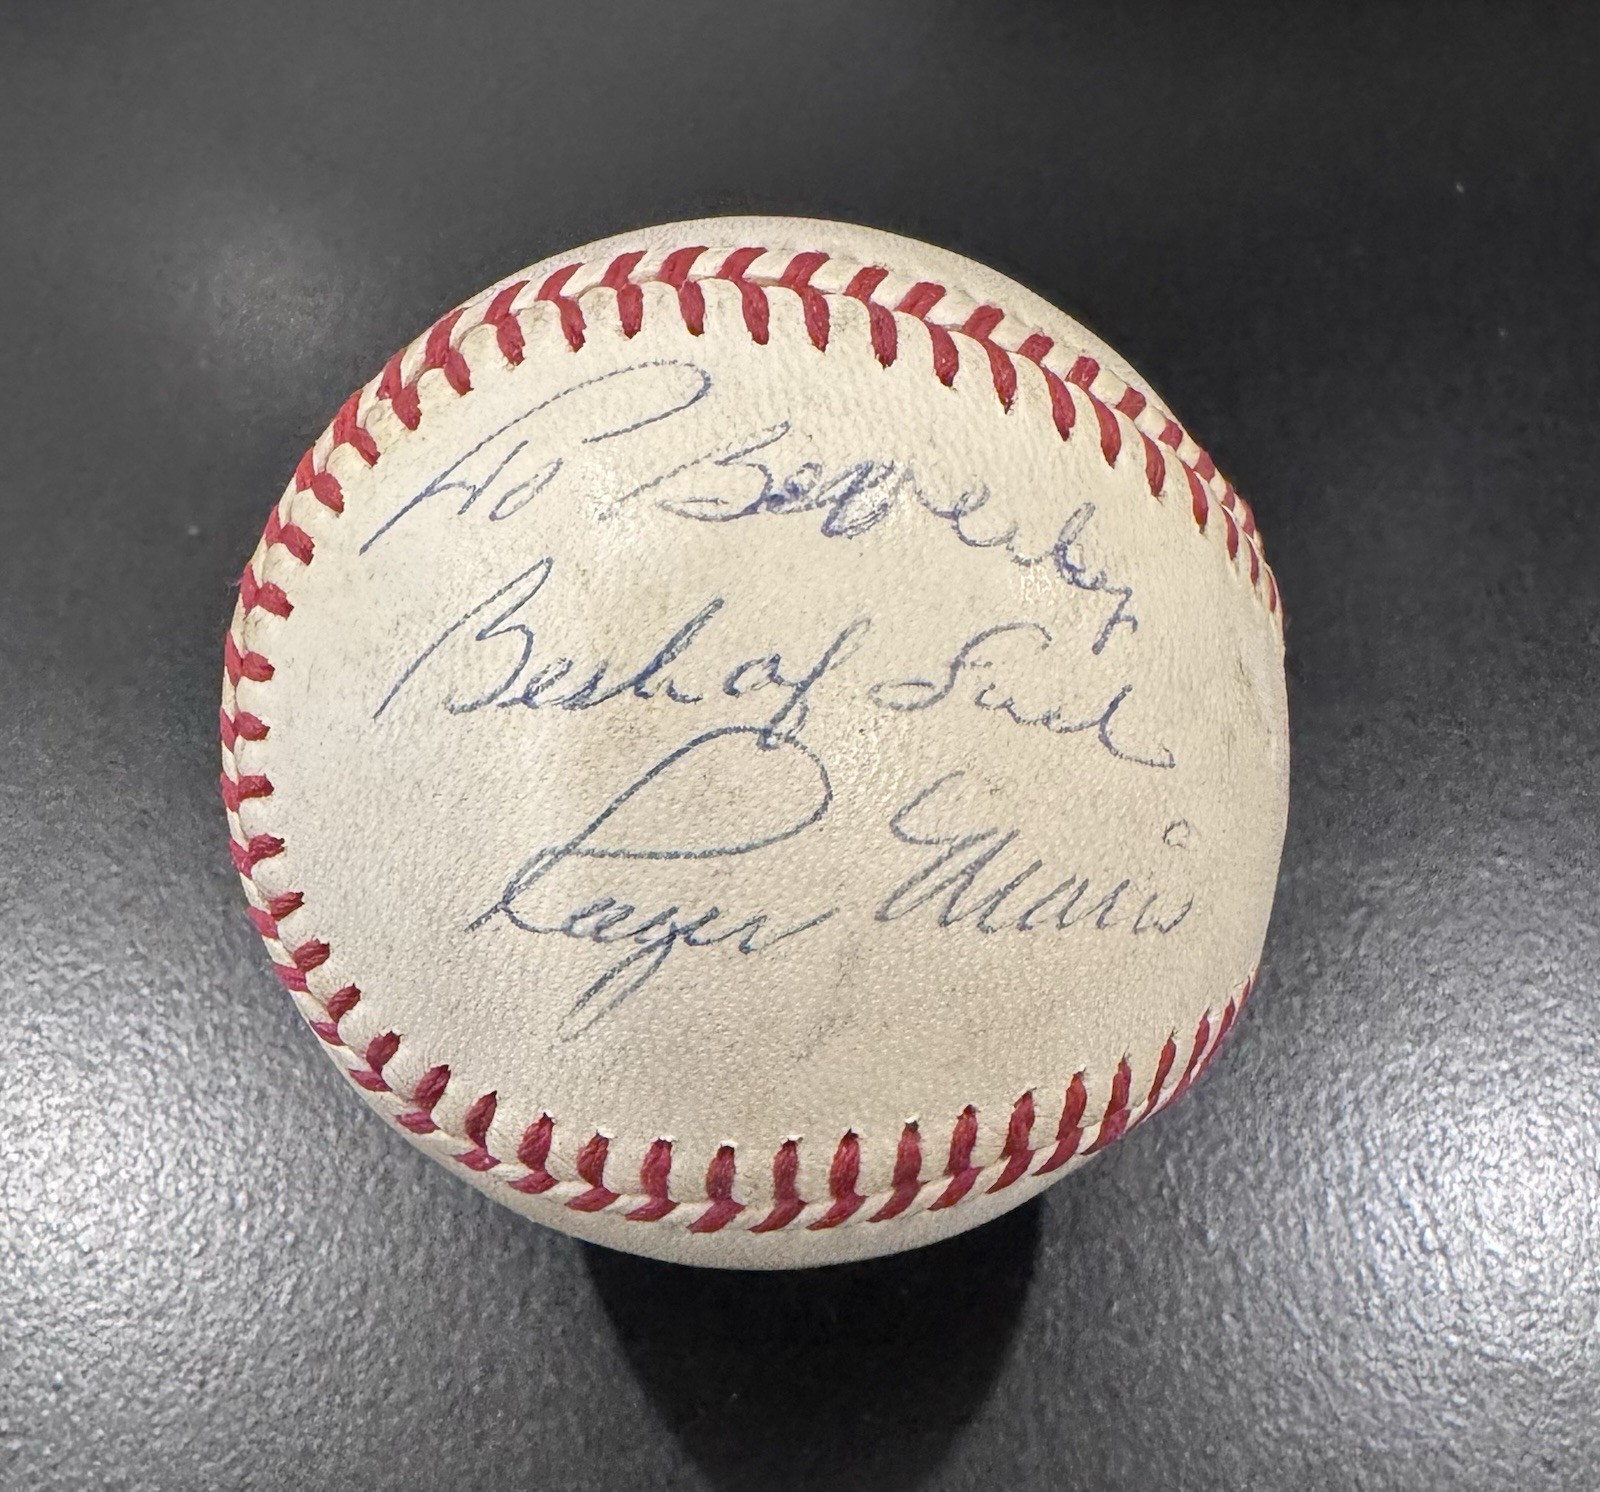 To Beverly
Best of Luck
Roger Maris